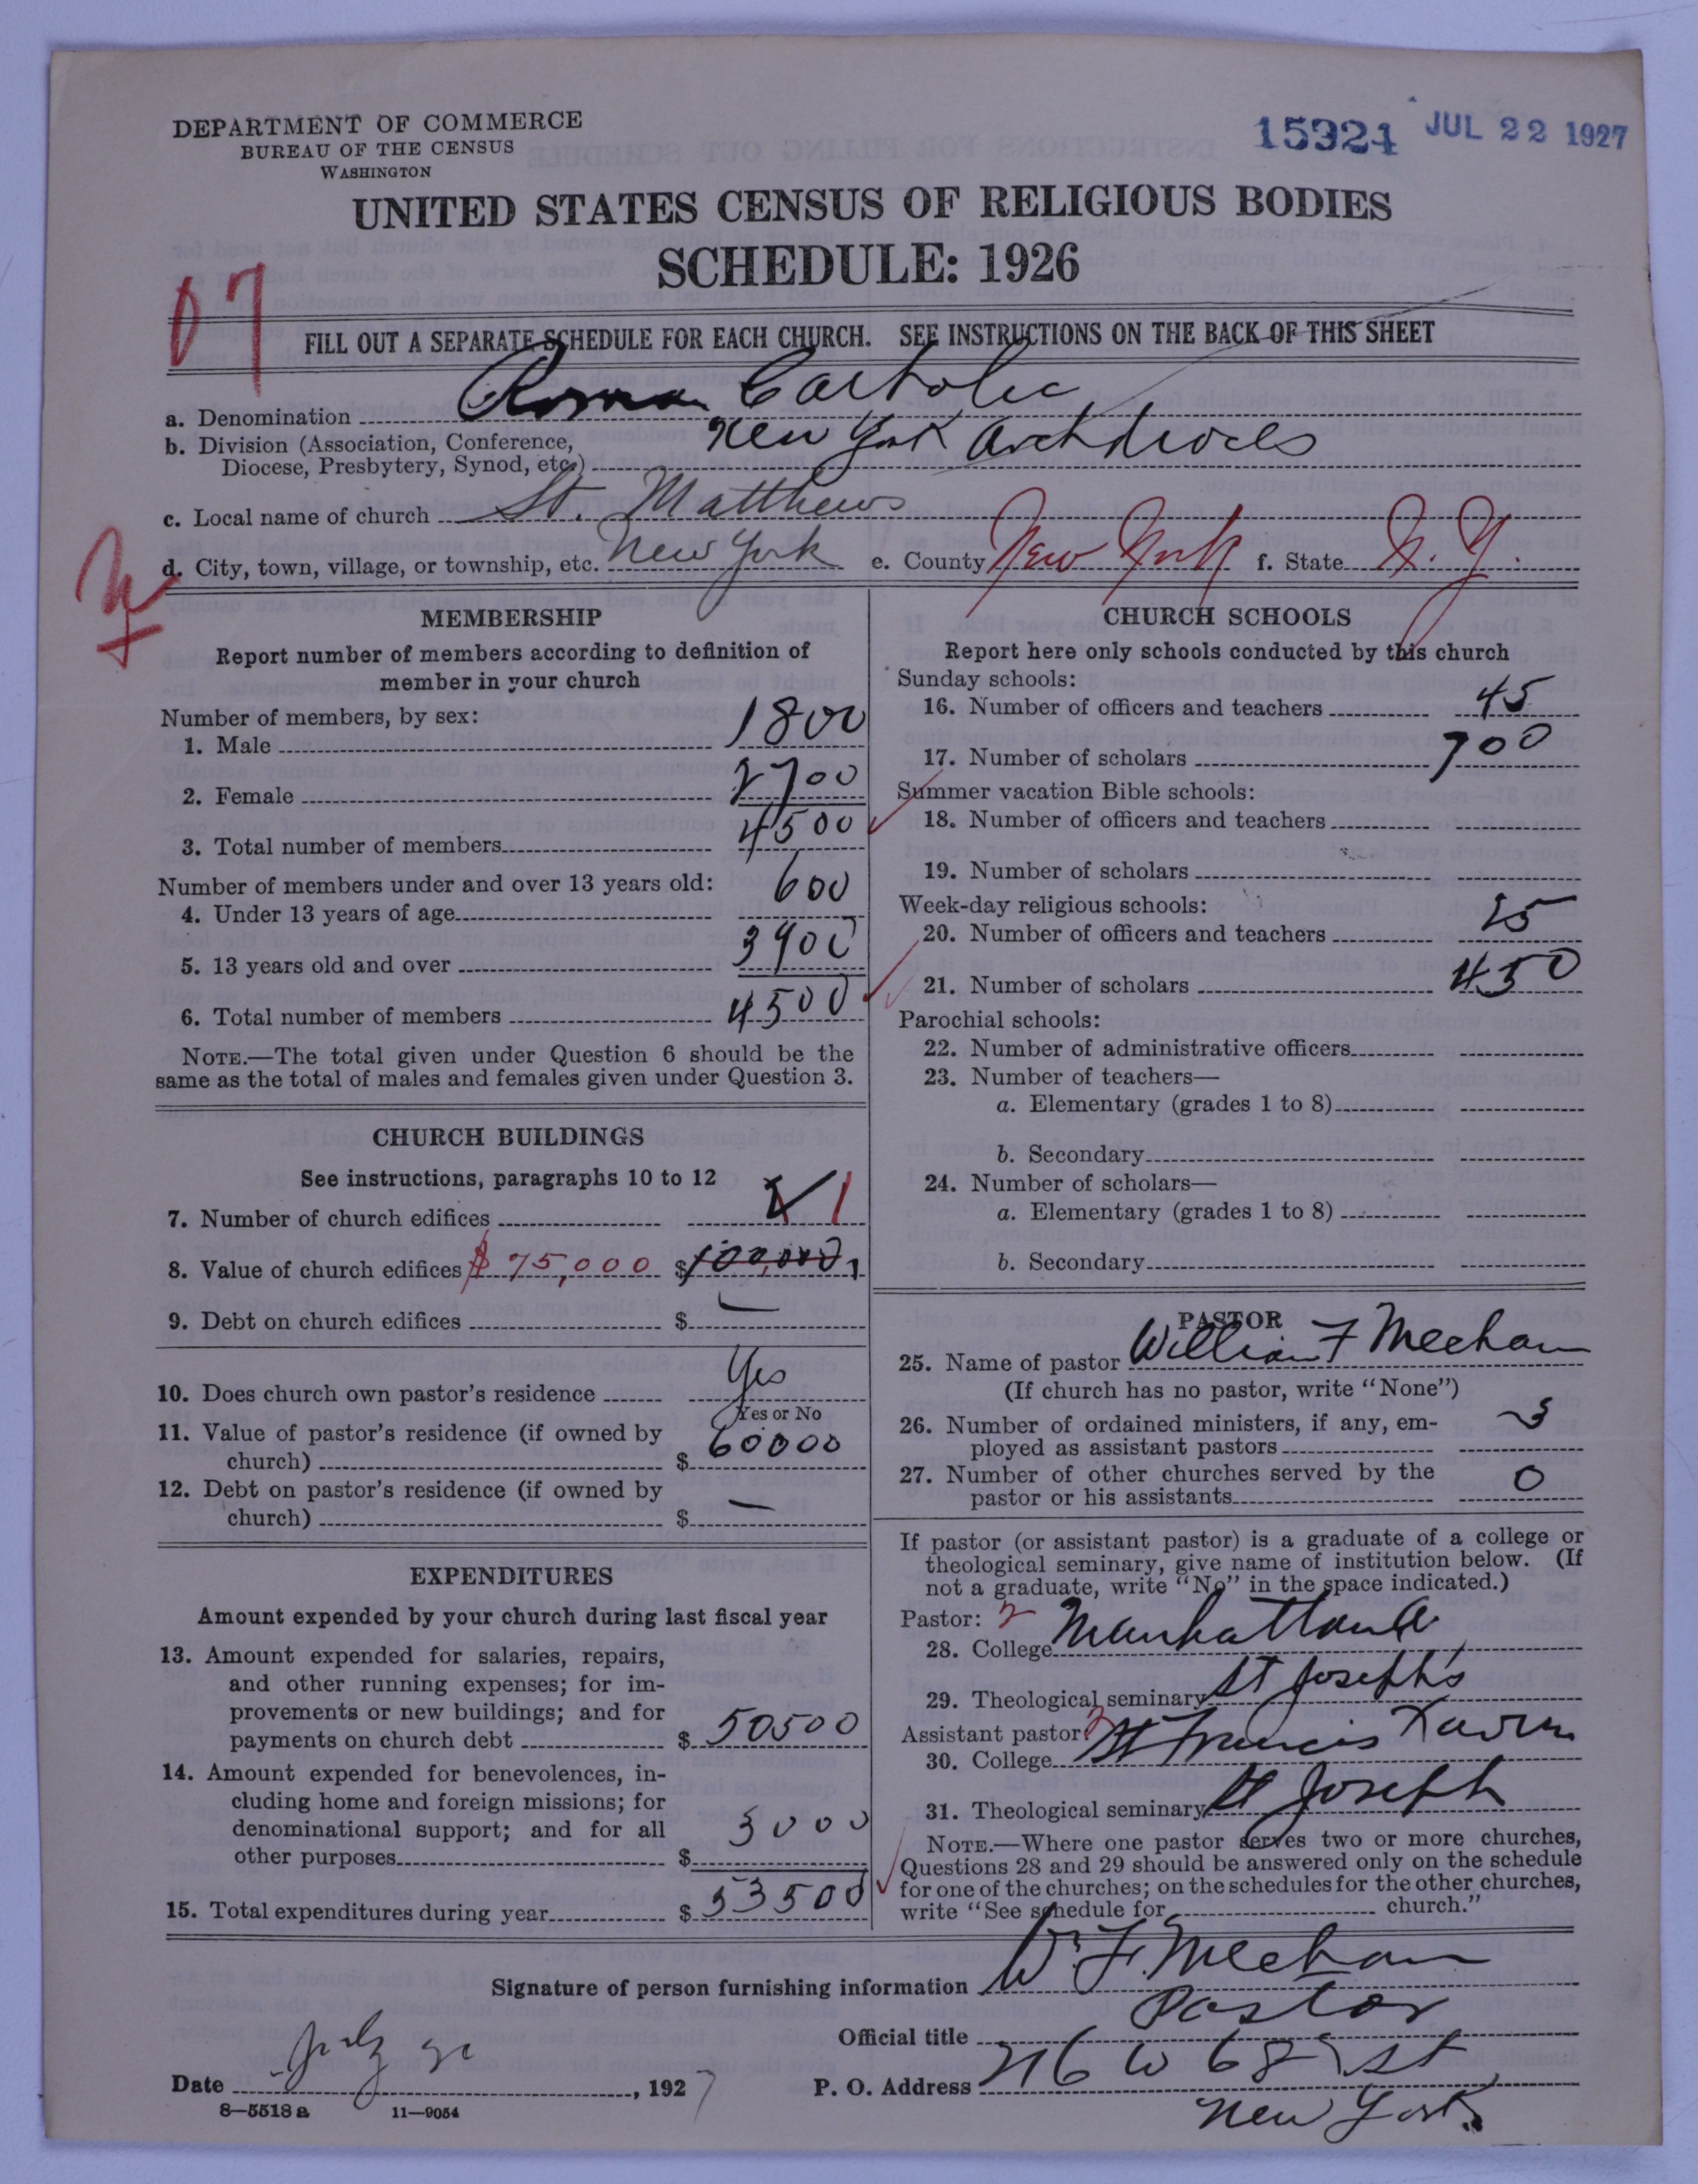 DEPARTMENT OF COMMERCE
BUREAU OF THE CENSUS
WASHINGTON
15924 JUL 22 1927
UNITED STATES CENSUS OF RELIGIOUS BODIES
SCHEDULE: 1926
07
FILL OUT A SEPARATE SCHEDULE FOR EACH CHURCH. SEE INSTRUCTIONS ON THE BACK OF THIS SHEET
a. Denomination Roman Catholic
b. Division (Association, Conference, Diocese, Presbytery, Synod, etc.) New York Archdioces
c. Local name of church St. Matthews
d. City, town, village, or township, etc. New York e. County New York f. State N.Y.
MEMBERSHIP
Report number of members according to definition of
member in your church
Number of members, by sex:
1. Male 1800
2. Female 2700
3. Total number of members 4500
Number of members under and over 13 years old:
4. Under 13 years of age 600
5. 13 years old and over 3900
6. Total number of members 4500
NOTE.—The total given under Question 6 should be the
same as the total of males and females given under Question 3.
CHURCH BUILDINGS
See instructions, paragraphs 10 to 12
7. Number of church edifices 1
8. Value of church edifices $75,000 $100,000
9. Debt on church edifices $ —
10. Does church own pastor's residence Yes
Yes or No
11. Value of pastor's residence (if owned by
church) $ 60000
12. Debt on pastor's residence (if owned by
church) $ —
EXPENDITURES
Amount expended by your church during last fiscal year
13. Amount expended for salaries, repairs,
and other running expenses; for im-
provements or new buildings; and for
payments on church debt $ 50500
14. Amount expended for benevolences, in-
cluding home and foreign missions; for
denominational support; and for all
other purposes $ 3000
15. Total expenditures during year $ 53500
CHURCH SCHOOLS
Report here only schools conducted by this church
Sunday schools:
16. Number of officers and teachers 45
17. Number of scholars 700
Summer vacation Bible schools:
18. Number of officers and teachers
19. Number of scholars
Week-day religious schools:
20. Number of officers and teachers 25
21. Number of scholars 450
Parochial schools:
22. Number of administrative officers
23. Number of teachers—
a. Elementary (grades 1 to 8)
b. Secondary
24. Number of scholars—
a. Elementary (grades 1 to 8)
b. Secondary
PASTOR
25. Name of pastor William F Meehan
(If church has no pastor, write "None")
26. Number of ordained ministers, if any, em-
ployed as assistant pastors 3
27. Number of other churches served by the
pastor or his assistants 0
If pastor (or assistant pastor) is a graduate of a college or
theological seminary, give name of institution below. (If
not a graduate, write "No" in the space indicated.)
Pastor: 2
28. College Manhattan
29. Theological seminary St Joseph's
Assistant pastor: 2
30. College St Francis Xavier
31. Theological seminary St Joseph
NOTE.—Where one pastor serves two or more churches,
Questions 28 and 29 should be answered only on the schedule
for one of the churches; on the schedules for the other churches,
write "See schedule for church."
Signature of person furnishing information W. F. Meehan
Official title Pastor
Date July 20, 1927
P. O. Address 216 W 68 St
New York
8—5518 a 11—9054